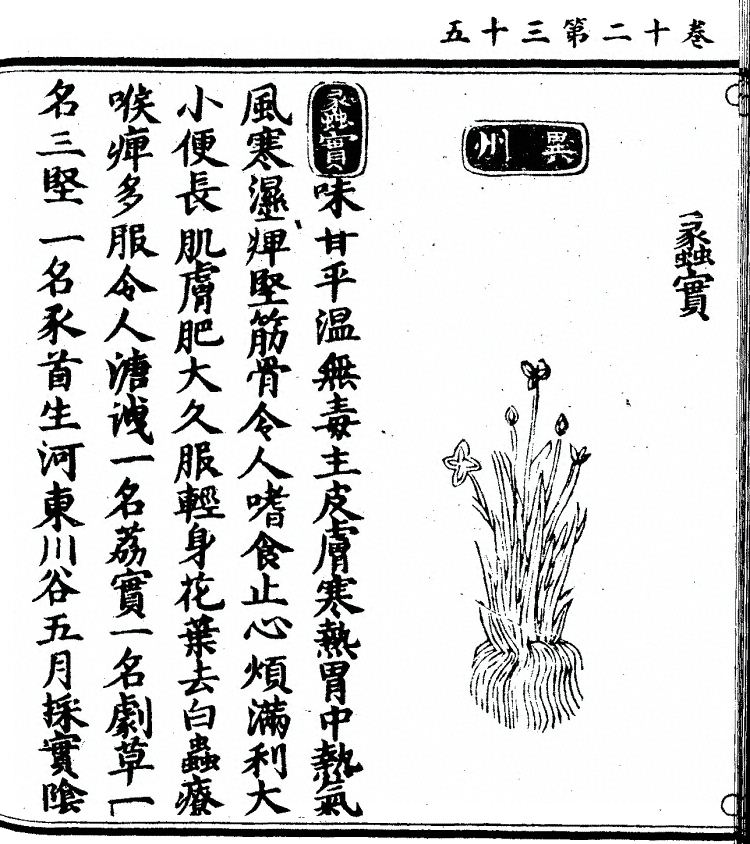 巻十二第三十五
蠡實
冀州
蠡實味甘平温無毒主皮膚寒熱胃中熱氣
風寒濕痺堅筋骨令人嗜食止心煩滿利大
小便長肌膚肥大久服輕身花葉去白蟲療
喉痺多服令人溏洩一名荔實一名劇草一
名三堅一名豕首生河東川谷五月採實陰